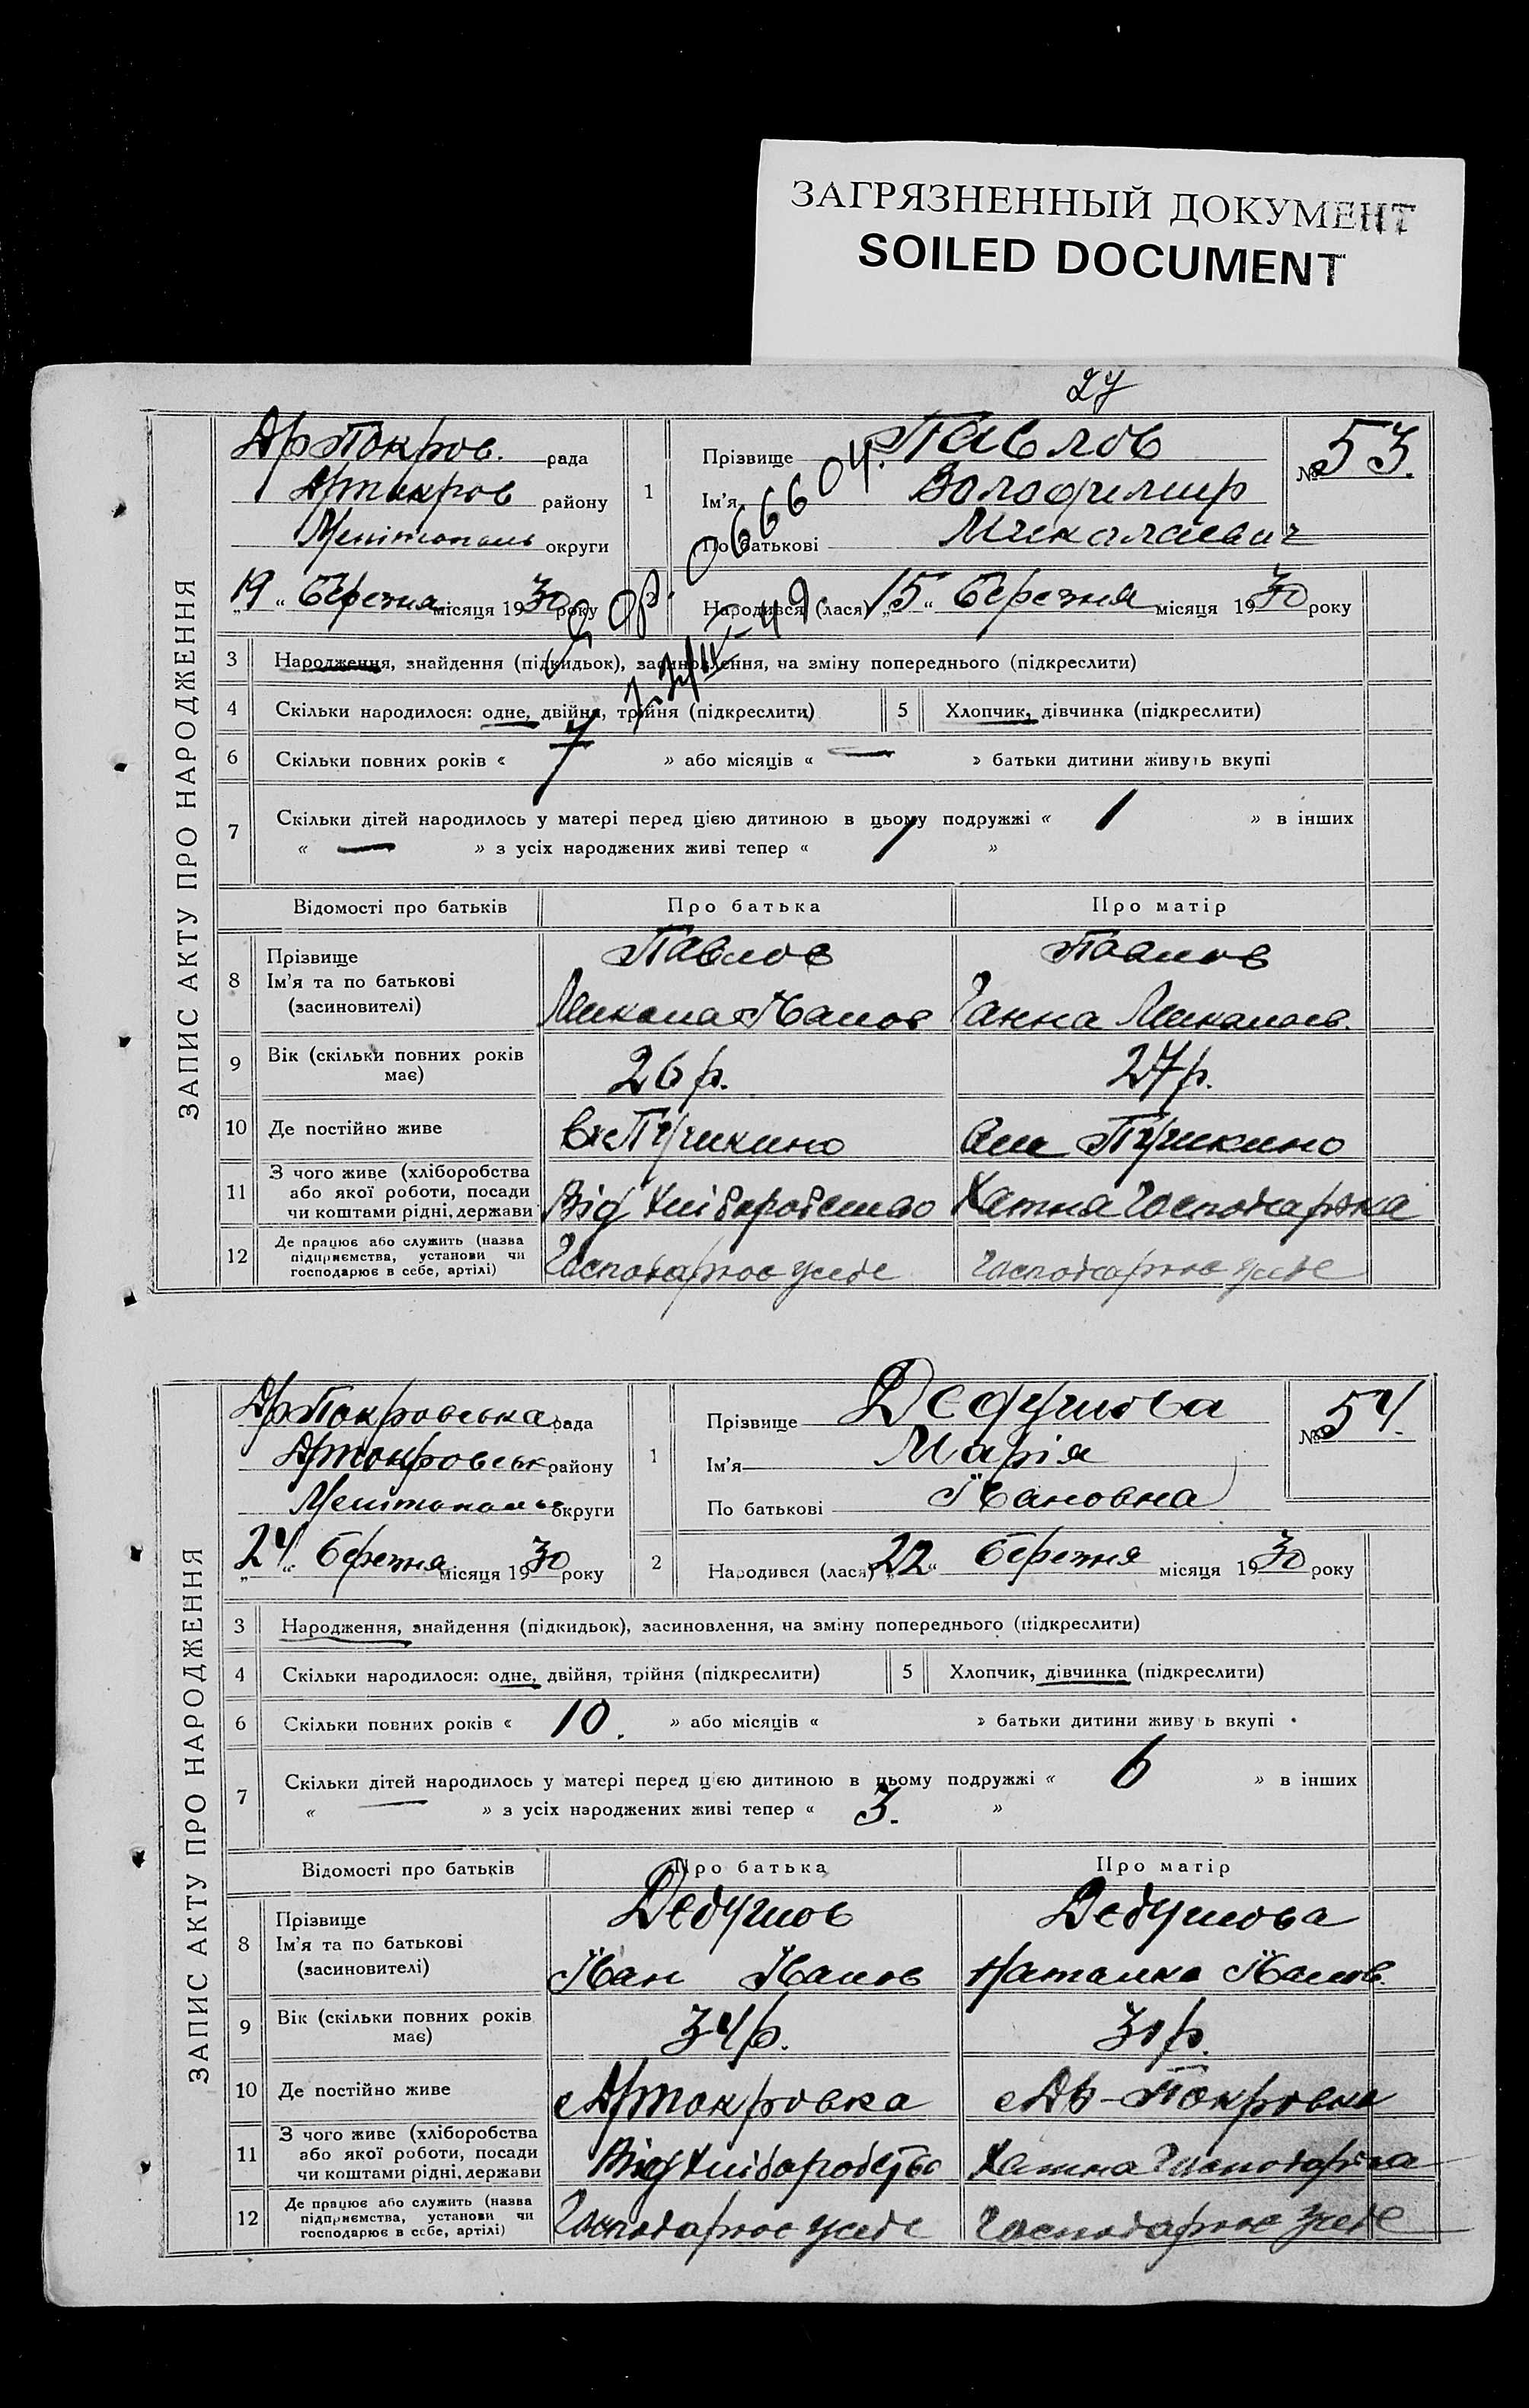 ЗАГРЯЗНЕННЫЙ ДОКУМЕНТ
SOILED DOCUMENT
27
ЗАПИС АКТУ ПРО НАРОДЖЕННЯ
Ар Покров. рада
району
Мелітополь округи
„19 “ Березня місяця 1930 року
1
Прізвище Павлов
Ім'я Володимир
По батькові Миколаевич
№ 53.
Народився (лася) „15 “ Березня місяця 1930 року
3 Народження, знайдення (підкидьок), засиновлення, на зміну попереднього (підкреслити)
4 Скільки народилося: одне, двійня, трійня (підкреслити) 5 Хлопчик, дівчинка (підкреслити)
6 Скільки повних років « 7 » або місяців « — » батьки дитини живуть вкупі
7 Скільки дітей народилось у матері перед цією дитиною в цьому подружжі « 1 » в інших
« — » з усіх народжених живі тепер « 1 »
Відомості про батьків Про батька Про матір
8 Прізвище Павлов Павлов
Ім'я та по батькові
(засиновителі) Микола Іванов Ганна Миколаєв.
9 Вік (скільки повних років має) 26 р. 27 р.
10 Де постійно живе Пушкино Пушкино
11 З чого живе (хліборобства
або якої роботи, посади
чи коштами рідні, держави Від хліборобство Хатня господарка
12 Де працює або служить (назва
підприємства, установи чи
господарює в себе, артілі) Господарює у себе Господарює у себе
ЗАПИС АКТУ ПРО НАРОДЖЕННЯ
Ар Покровська рада
району
Мелітополь округи
„24. “ березня місяця 1930 року
1
Прізвище Дедушова
Ім'я Марія
По батькові Івановна
№ 54.
2 Народився (лася) „22 “ березня місяця 1930 року
3 Народження, знайдення (підкидьок), засиновлення, на зміну попереднього (підкреслити)
4 Скільки народилося: одне, двійня, трійня (підкреслити) 5 Хлопчик, дівчинка (підкреслити)
6 Скільки повних років « 10. » або місяців « » батьки дитини живуть вкупі
7 Скільки дітей народилось у матері перед цією дитиною в цьому подружжі « 6 » в інших
« — » з усіх народжених живі тепер « 3. »
Відомості про батьків Про батька Про матір
8 Прізвище Дедушов Дедушова
Ім'я та по батькові
(засиновителі) Іван Іванов Наталка Іванов.
9 Вік (скільки повних років має) 34 р. 31 р.
10 Де постійно живе с Ар-Покровка
11 З чого живе (хліборобства
або якої роботи, посади
чи коштами рідні, держави Від хліборобство Хатня господарка
12 Де працює або служить (назва
підприємства, установи чи
господарює в себе, артілі) Господарює у себе Господарює у себе